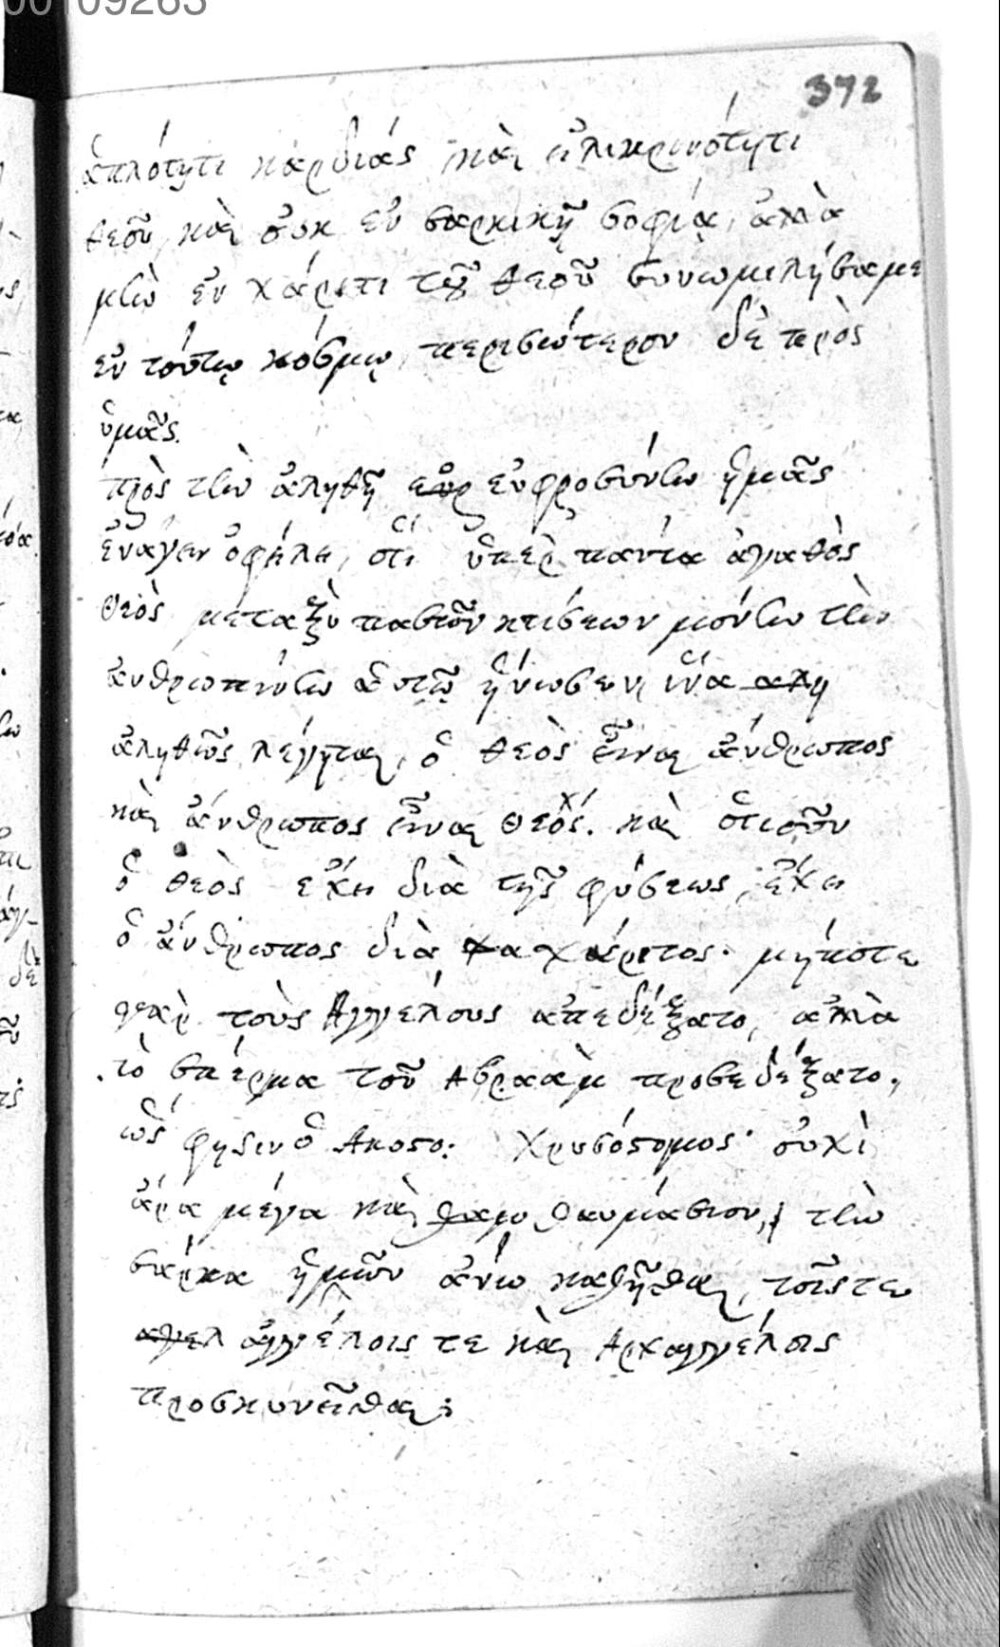 00109263
372
ἁπλότητι καρδιάς καὶ εἰλικρινότητι
θεοῦ, καὶ οὐκ ἐν σαρκικῇ σοφίᾳ, ἀλλὰ
μὴν ἐν χάριτι τοῦ θεοῦ συνωμιλήσαμε
ἐν τούτῳ κόσμῳ, περισώτερον δὲ πρὸς
ὑμᾶς.
πρὸς τὴν ἀληθῆ ευφρ εὐφροσύνην ἡμᾶς
ἐνάγειν ὀφήλει, ὅτι ὑπὲρ πάντα ἀγαθὸς
Θεὸς μεταξὺ πασῶν κτίσεων μόνην τὴν
ἀνθρωπίνην αὑτῷ ἥνωσεν, ἵνα αλη
ἀληθῶς λέγηται, ὁ θεὸς εἶναι ἄνθρωπος
καὶ ἄνθρωπος εἶναι Θεός. καὶ ὁτιοῦν
ὁ θεὸς ἔχει διὰ τῆς φύσεως, ἔχει
ὁ ἄνθρωπος διὰ χα χάριτος. μήποτε
γὰρ τοὺς Ἀγγέλους ἀπεδέξατο, ἀλλὰ
τὸ σπέρμα τοῦ Αβραὰμ προσεδέξατο,
ὥς φησιν ὁ Αποστο: Χρυσόστομος· οὐχὶ
ἄρα μέγα καὶ θαμ θαυμάσιον, τὴν
σάρκα ἡμῶν ἄνω καθῆσθαι, τοῖς τε
αγελ ἀγγέλοις τε καὶ Αρχαγγέλοις
προσκυνεῖσθαι;